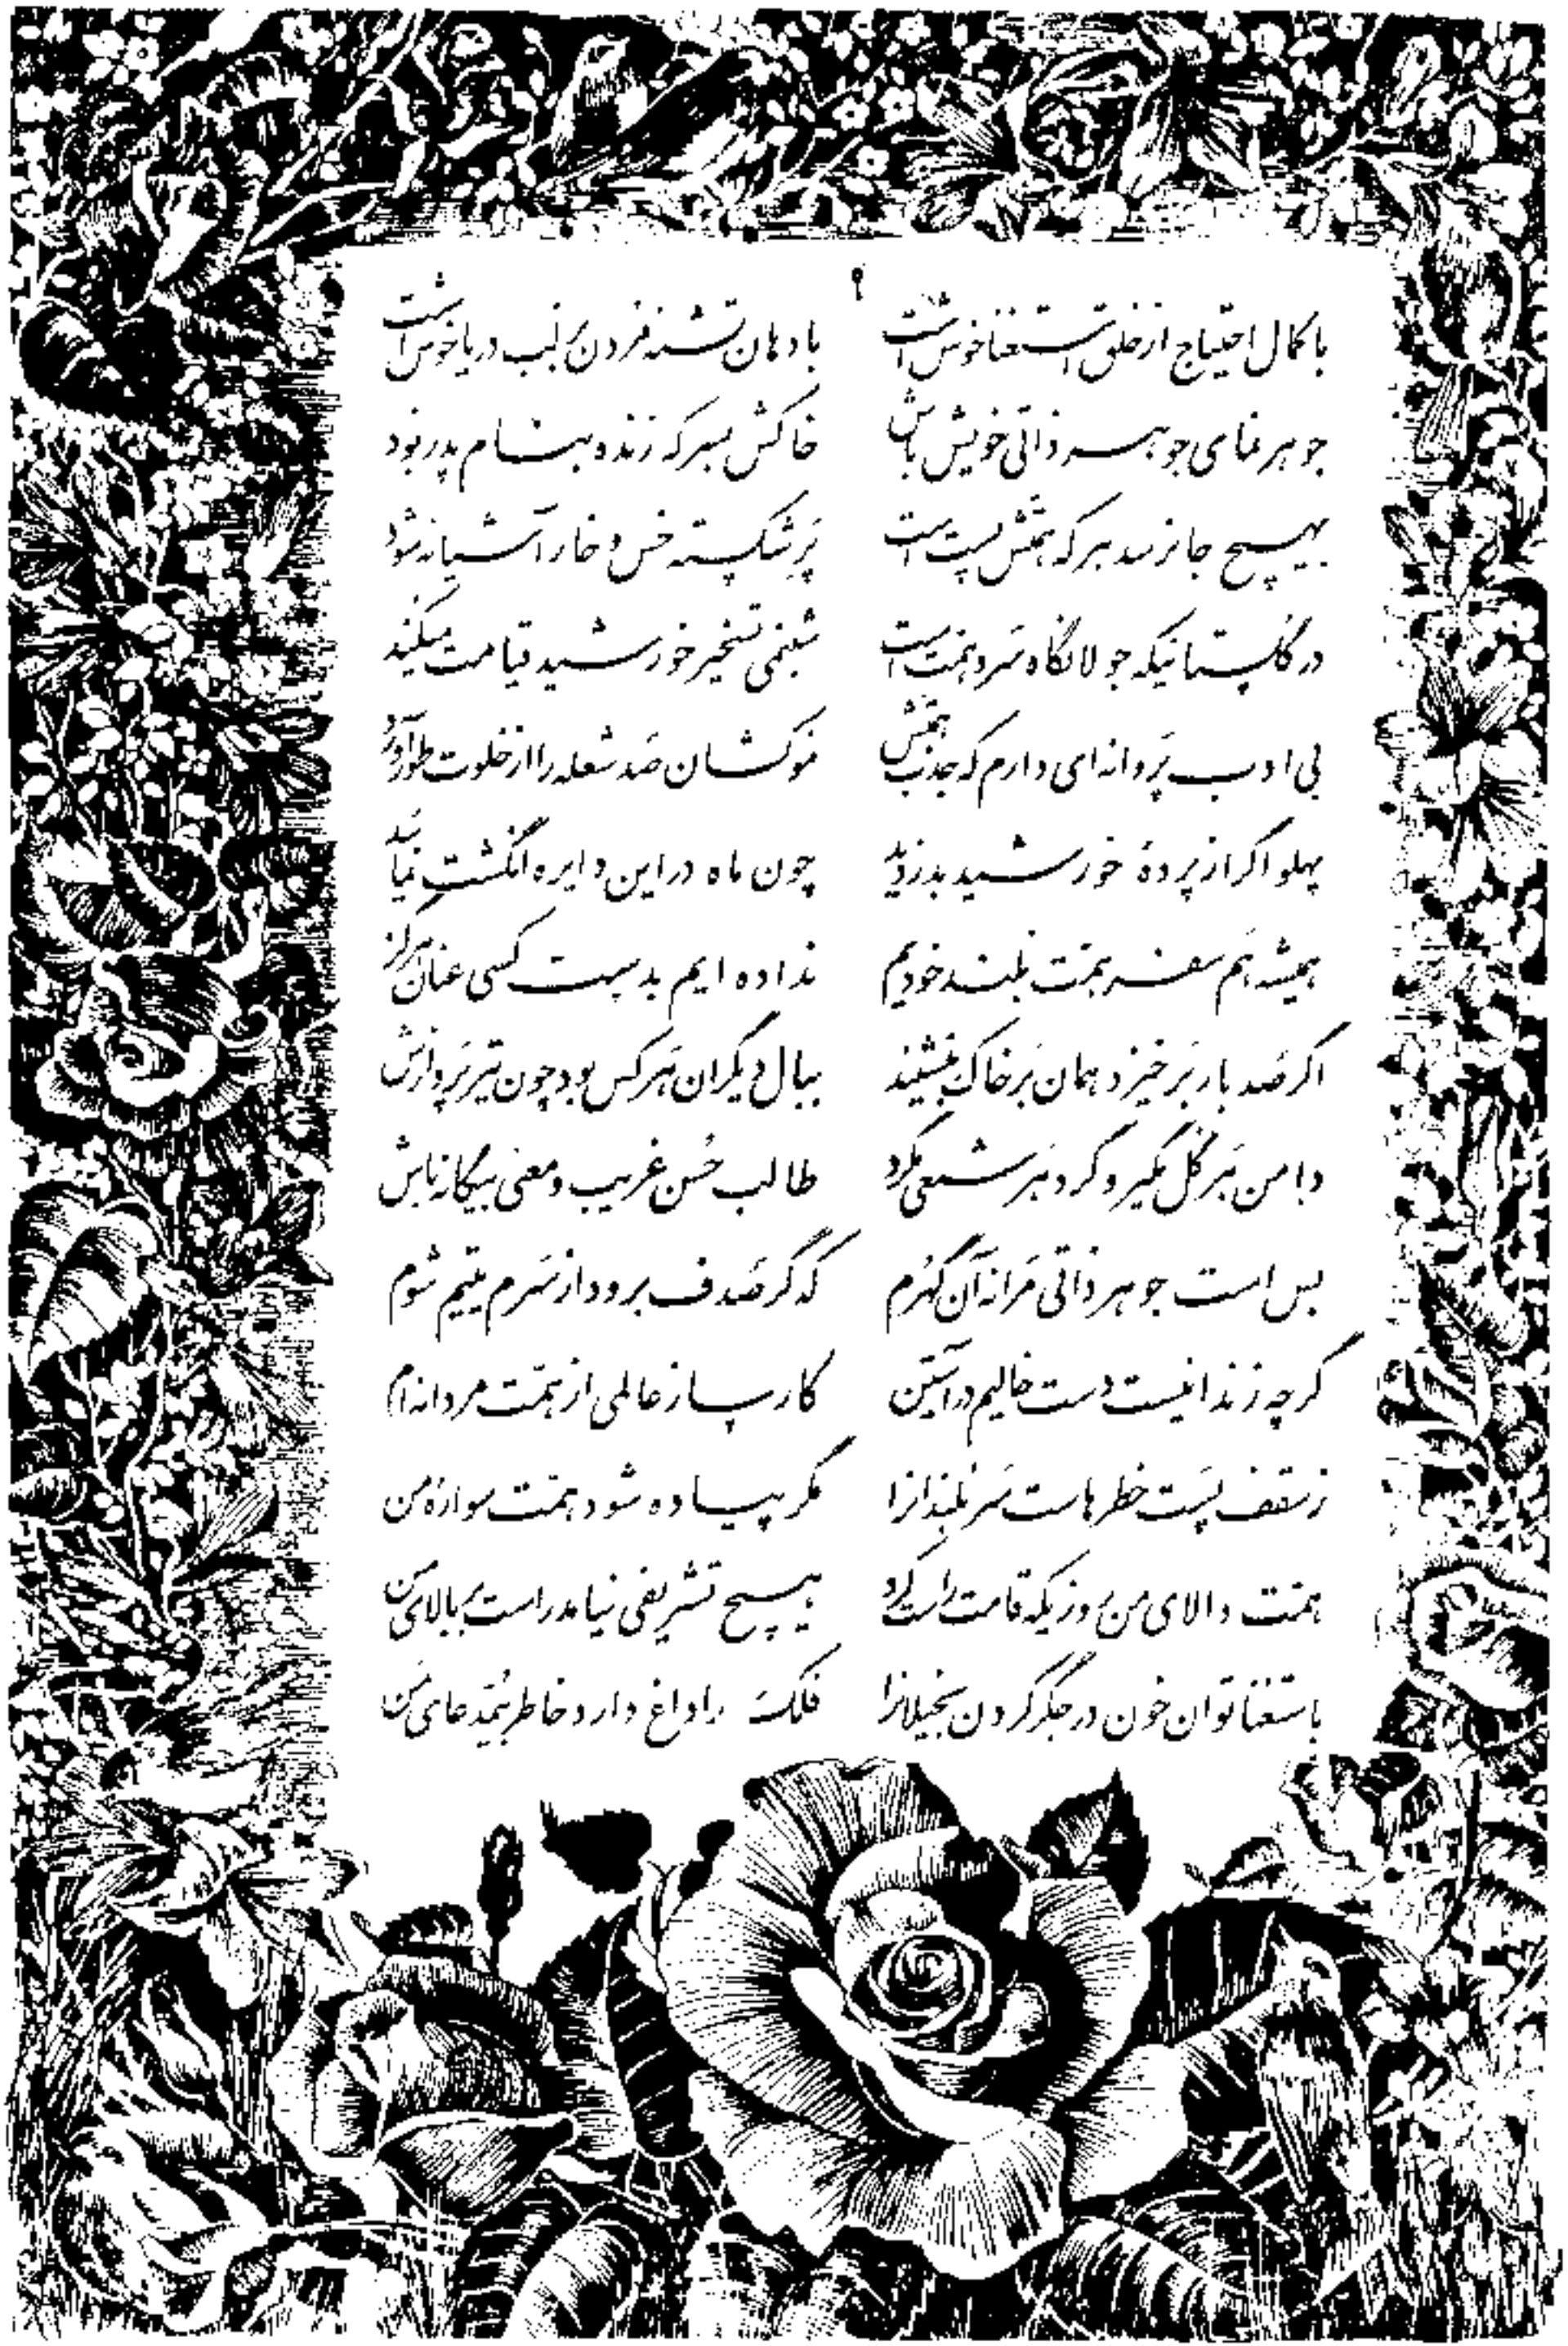 ۹
با کمال احتیاج از خلق استغنا خوش است با دهان تشنه مردن بر لب دریا خوش است
جوهر نمای جوهر ذاتی خویش باش خاکش بسر که زنده بنام پدر بود
بهیچ جا نرسد هر که همتش پست است پر شکسته خس و خار آشیانه شود
در گلستانیکه جولانگاه سرو همت است شبنمی تسخیر خورشید قیامت میکند
بی ادب پروانه‌ای دارم که جذب همتش موکشان صد شعله را از خلوت طور آورد
پهلو اگر از پردهٔ خورشید بدزدید چون ماه در این دایره انگشت نمائید
همیشه هم سفر همت بلند خودیم نداده ایم بدست کسی عنان هرگز
اگر صد بار برخیزد همان بر خاک بنشیند ببال دیگران هر کس بود چون تیر پروازش
دامن هر گل مگیر و گرد هر شمعی مگرد طالب حسن غریب و معنی بیگانه باش
بس است جوهر ذاتی مرا نه آن گهرم که گر صدف برود از سرم یتیم شوم
گر چه زندانیست دست خالیم در آستین کارساز عالمی از همت مردانه‌ام
ز سقف پست خطرهاست سر بلندانرا مگر پیاده شود همت سوارهٔ من
همت والای من روزیکه قامت راست کرد هیچ تشریفی نیامد راست بر بالای من
باستغنا توان خون در جگر کردن بخیلانرا فلک را داغ دارد خاطر بی مدعای من